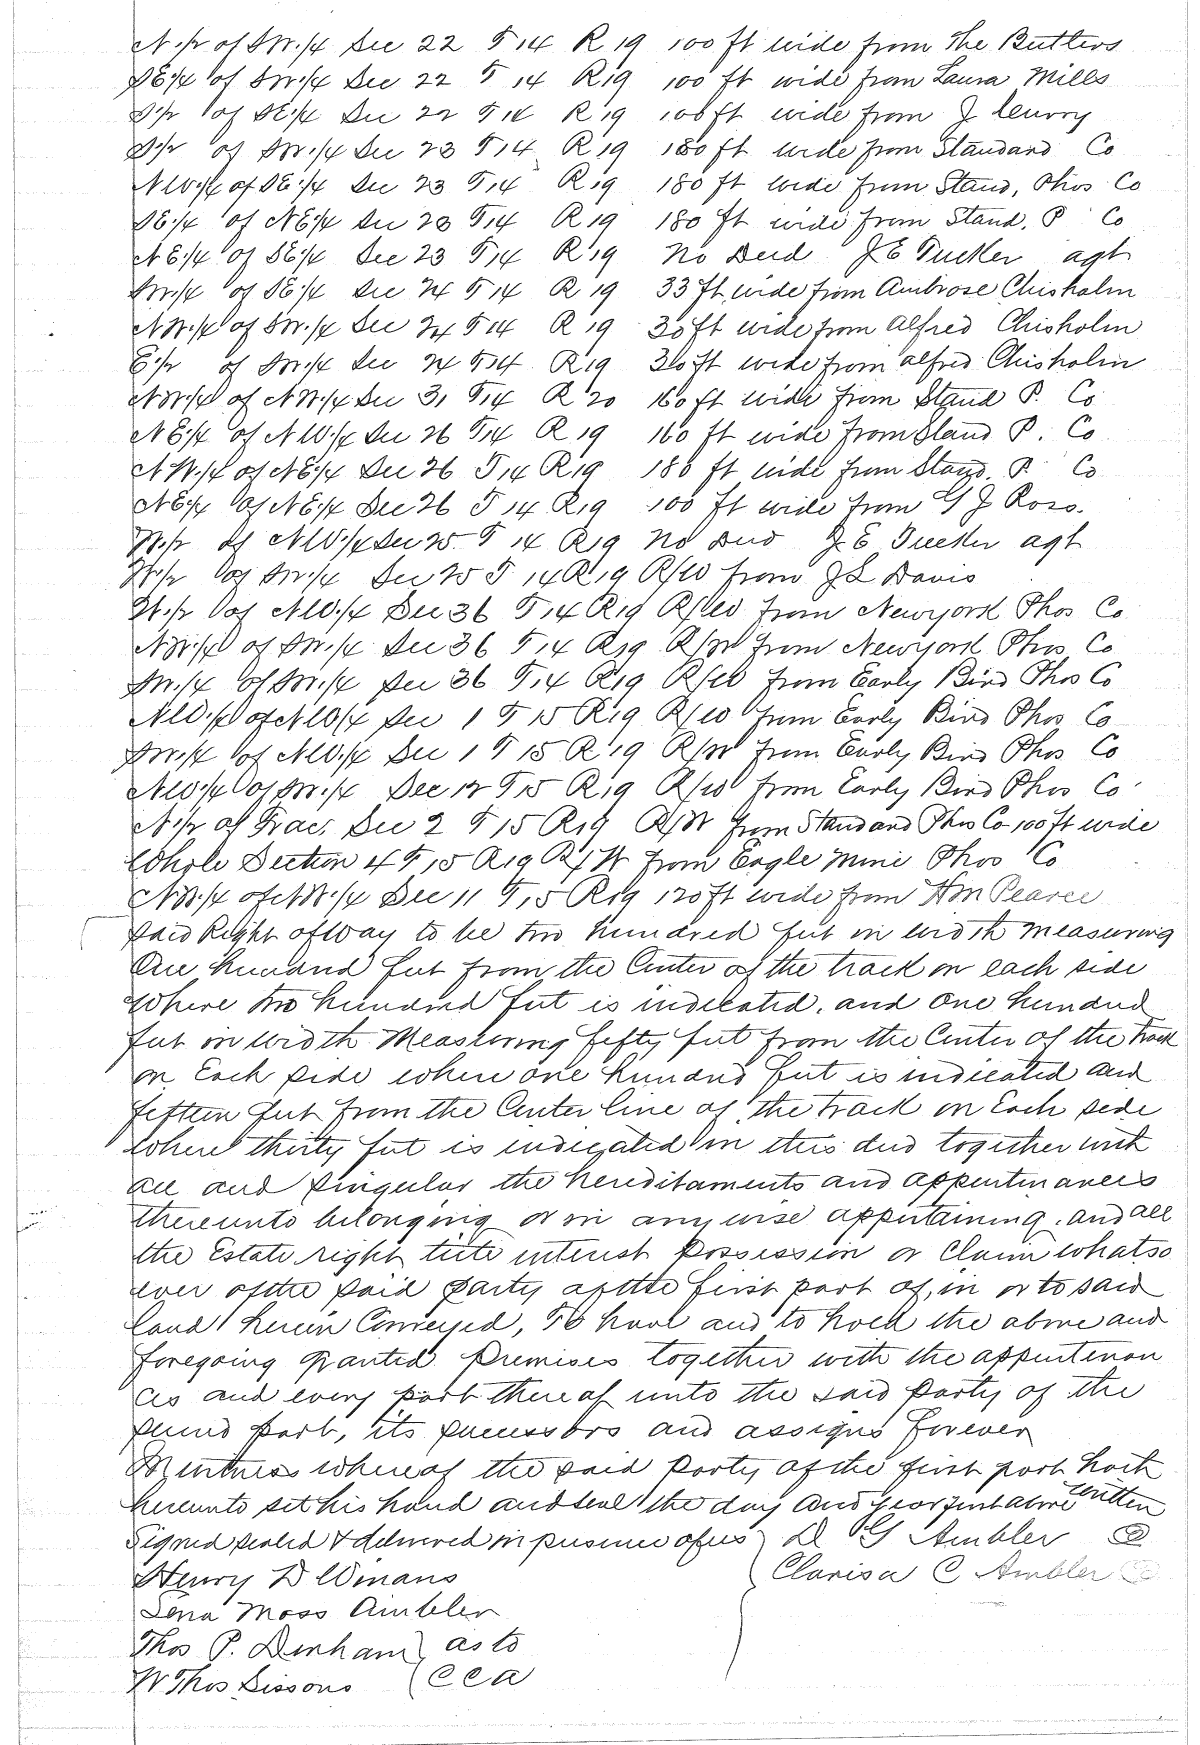 N.½ of SW.¼ Sec 22 T 14 R 19 100 ft wide from The Butlers
SE¼ of SW.¼ Sec 22 T 14 R 19 100 ft wide from Laura Mills
S½ of SE¼ Sec 22 T 14 R 19 100 ft wide from J Curry
S½ of SW.¼ Sec 23 T 14 R 19 180 ft wide from Standard Co
NW.¼ of SE.¼ Sec 23 T 14 R 19 180 ft wide from Stand, Phos Co
SE¼ of NE¼ Sec 23 T 14 R 19 180 ft wide from Stand. P Co
NE¼ of SE¼ Sec 23 T 14 R 19 No Deed J E Tucker agt
SW.¼ of SE¼ Sec 24 T 14 R 19 33 ft wide from Ambrose Chisholm
NW.¼ of SW.¼ Sec 24 T 14 R 19 30 ft wide from Alfred Chisholm
E.½ of SW.¼ Sec 24 T 14 R 19 30 ft wide from Alfred Chisholm
NW.¼ of NW.¼ Sec 31 T 14 R 20 160 ft wide from Stand P. Co
NE¼ of NW.¼ Sec 26 T 14 R 19 160 ft wide from Stand P. Co
NW.¼ of NE¼ Sec 26 T 14 R 19 180 ft wide from Stand. P. Co
NE¼ of NE¼ Sec 26 T 14 R 19 100 ft wide from G J Ross.
W.½ of NW.¼ Sec 25 T 14 R 19 No Deed J E Tucker agt
W.½ of SW.¼ Sec 25 T 14 R 19 R/W from J L Davis
W.½ of NW.¼ Sec 36 T 14 R 19 R/W from Newyork Phos Co
NW.¼ of SW.¼ Sec 36 T 14 R 19 R/W from Newyork Phos Co
SW.¼ of SW.¼ Sec 36 T 14 R 19 R/W from Early Bird Phos Co
NW.¼ of NW¼ Sec 1 T 15 R 19 R/W from Early Bird Phos Co
SW.¼ of NW.¼ Sec 1 T 15 R 19 R/W from Early Bird Phos Co
NW.¼ of SW.¼ Sec 12 T 15 R 19 R/W from Early Bird Phos Co
N.½ of Frac. Sec 2 T 15 R 19 R/W from Standard Phos Co 100 ft wide
Whole Section 4 T 15 R 19 R/W from Eagle Mine Phos Co
NW.¼ of NW.¼ Sec 11 T 15 R 19 120 ft wide from Wm Pearce
said Right of Way to be two hundred feet in width measuring
One hundred feet from the Center of the track on each side
where two hundred feet is indicated. and One hundred
feet in width Measuring fifty feet from the Center of the track
on Each side where one hundred feet is indicated and
fifteen feet from the Center line of the track on Each side
where thirty feet is indicated in this deed together with
all and singular the hereditaments and appurtenances
thereunto belonging or in anywise appertaining. and all
the Estate right title interest possession or Claim whatso
ever of the said party of the first part of, in or to said
land herein Conveyed, To have and to hold the above and
foregoing granted premises together with the appurtenan
ces and every part thereof unto the said party of the
second part, its successors and assigns forever
In witness whereof the said party of the first part hath
hereunto set his hand and seal the day and year first above written
Signed sealed & delivered in presence of us D G Ambler
Henry D Winans Clarisa C Ambler
Lena Moss Ambler
Thos P. Denham as to
W Thos Sissons C C A